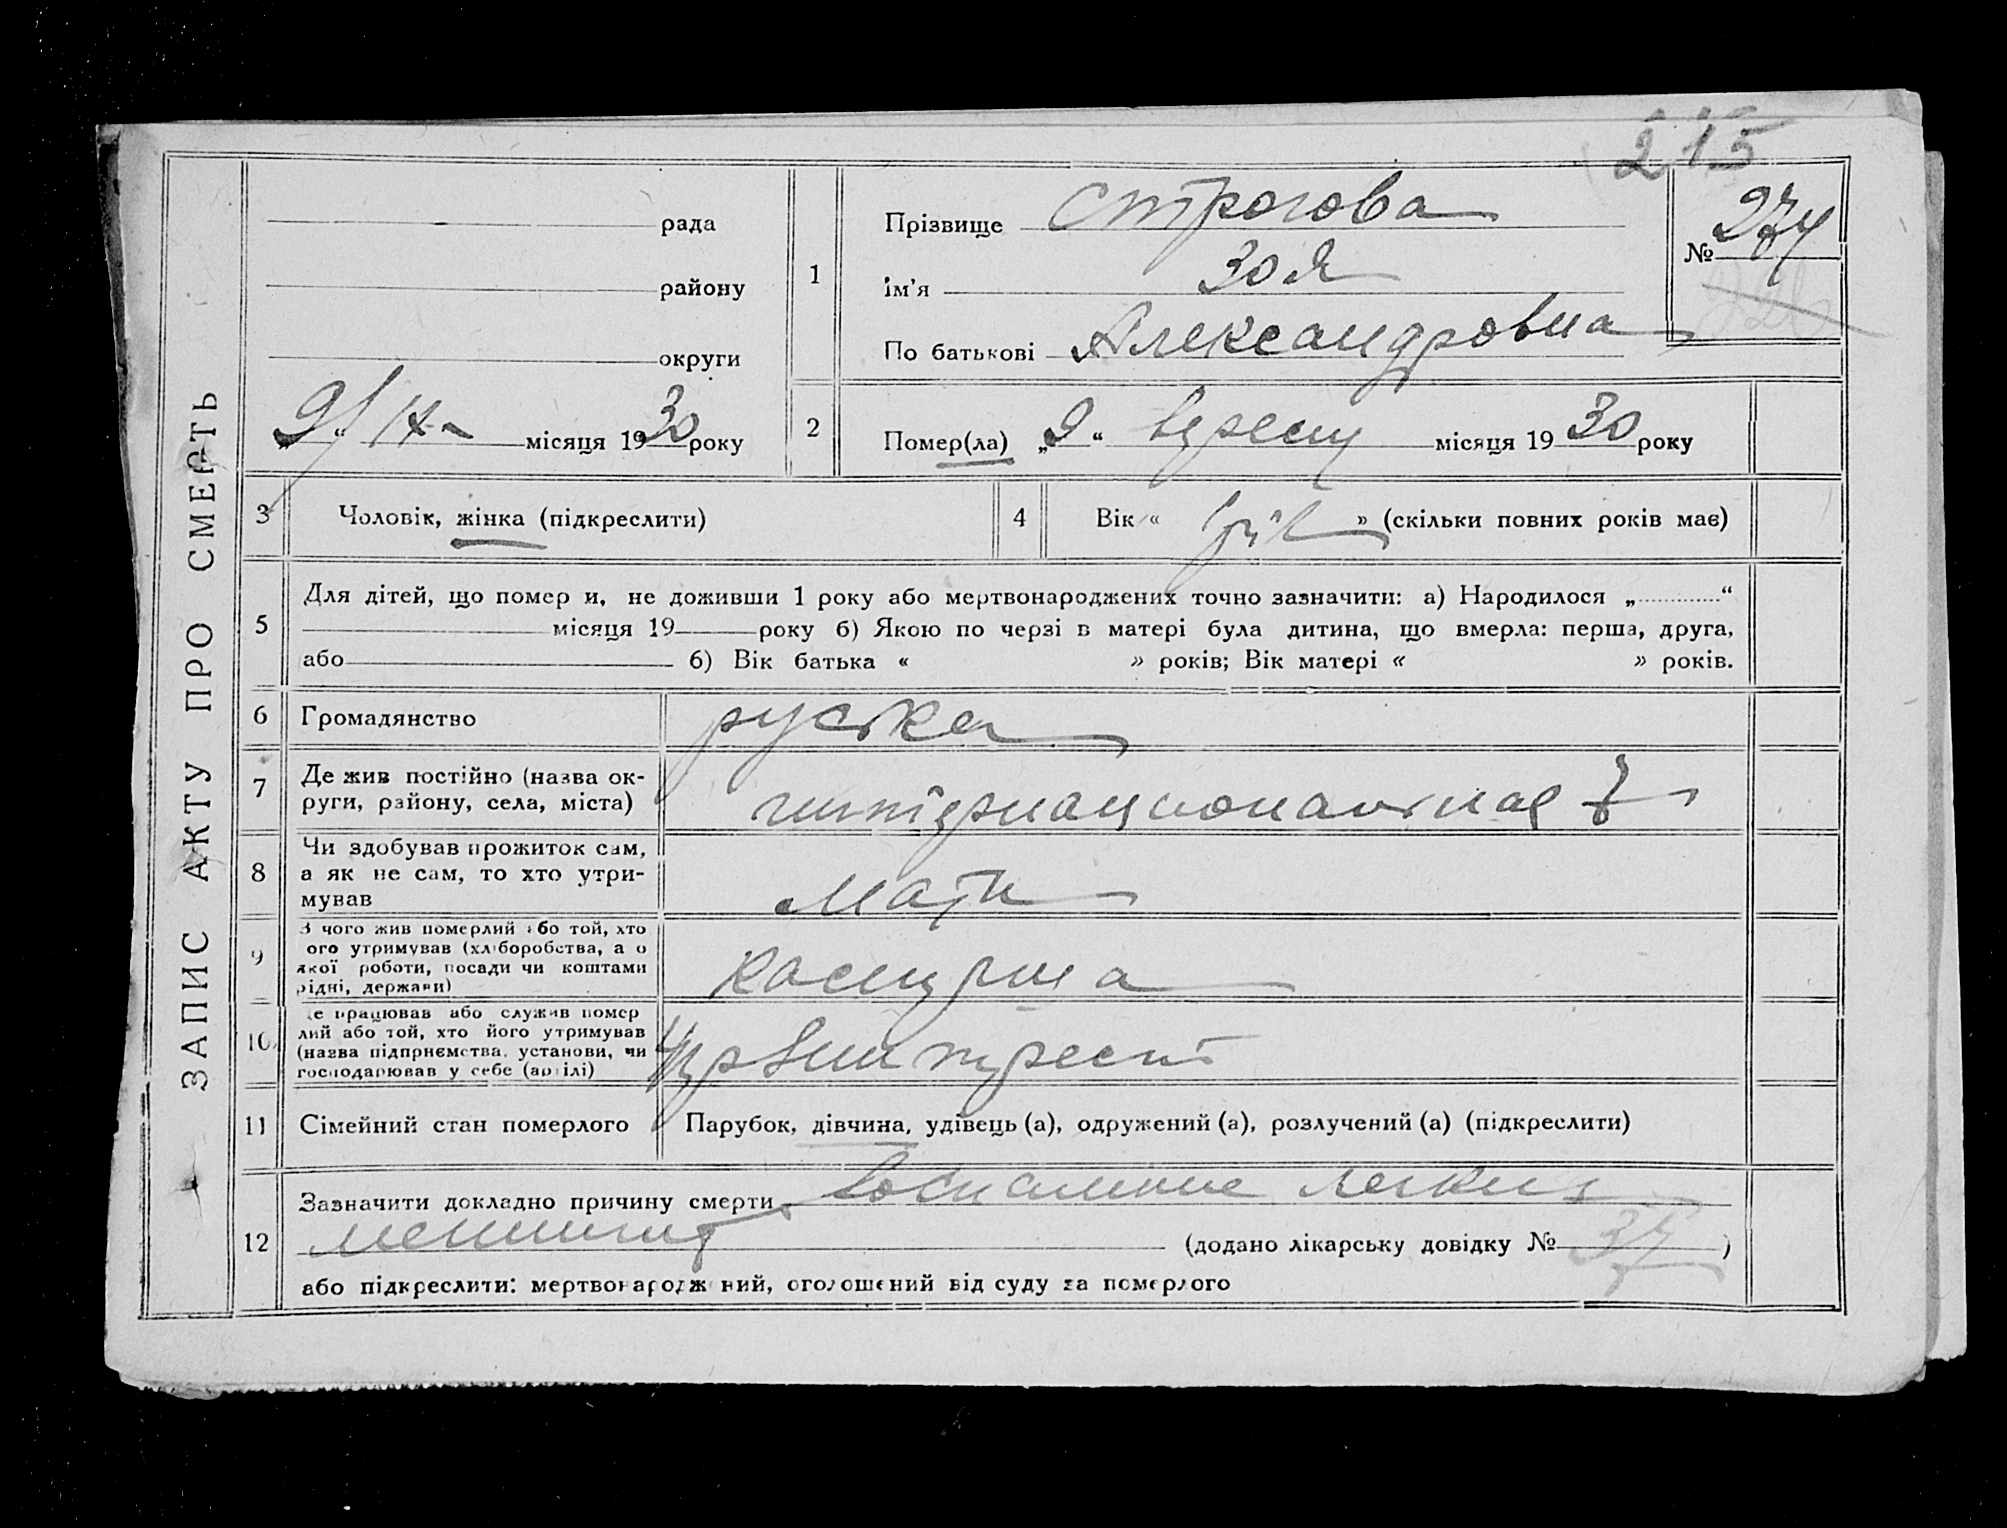 215
ЗАПИС АКТУ ПРО СМЕРТЬ
рада
району
округи
9/IX- місяця 1930 року
1
Прізвище Строгова
Ім'я Зоя
По батькові Александровна
№ 274
2
Помер(ла) „9“ вересн місяця 1930 року
3
Чоловік, жінка (підкреслити)
4
Вік « » (скільки повних років має)
5
Для дітей, що помер и, не доживши 1 року або мертвонароджених точно зазначити: а) Народилося „ “
місяця 19 року б) Якою по черзі в матері була дитина, що вмерла: перша, друга,
або б) Вік батька « » років; Вік матері « » років.
6
Громадянство
руська
7
Де жив постійно (назва ок-
руги, району, села, міста)
интернациональная 7
8
Чи здобував прожиток сам,
а як не сам, то хто утри-
мував
мати
9
З чого жив померлий або той, хто
ого утримував (хліборобства, а о
якої роботи, посади чи коштами
рідні, держави)
касирша
10
е працював або служив помер
лий або той, хто його утримував
(назва підприємства, установи, чи
господарював у себе (артілі)
Церквин трест
11
Сімейний стан померлого
Парубок, дівчина, удівець (а), одружений (а), розлучений (а) (підкреслити)
12
Зазначити докладно причину смерти Воспаление легких
менингит (додано лікарську довідку № 37)
або підкреслити: мертвонароджений, оголошений від суду за померлого